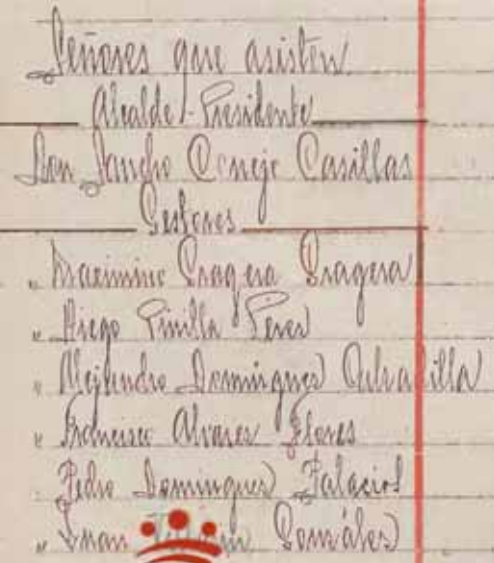 Señores que asisten
Alcalde-Presidente
Don Sancho Conejo Casillas
Gestores
" Maximino Pragera Pragera
" Diego Pinilla Perez
" Alejandro Dominguez Calvadilla
" Francisco Alvarez Flores
Pedro Dominguez Palacios
" Juan González